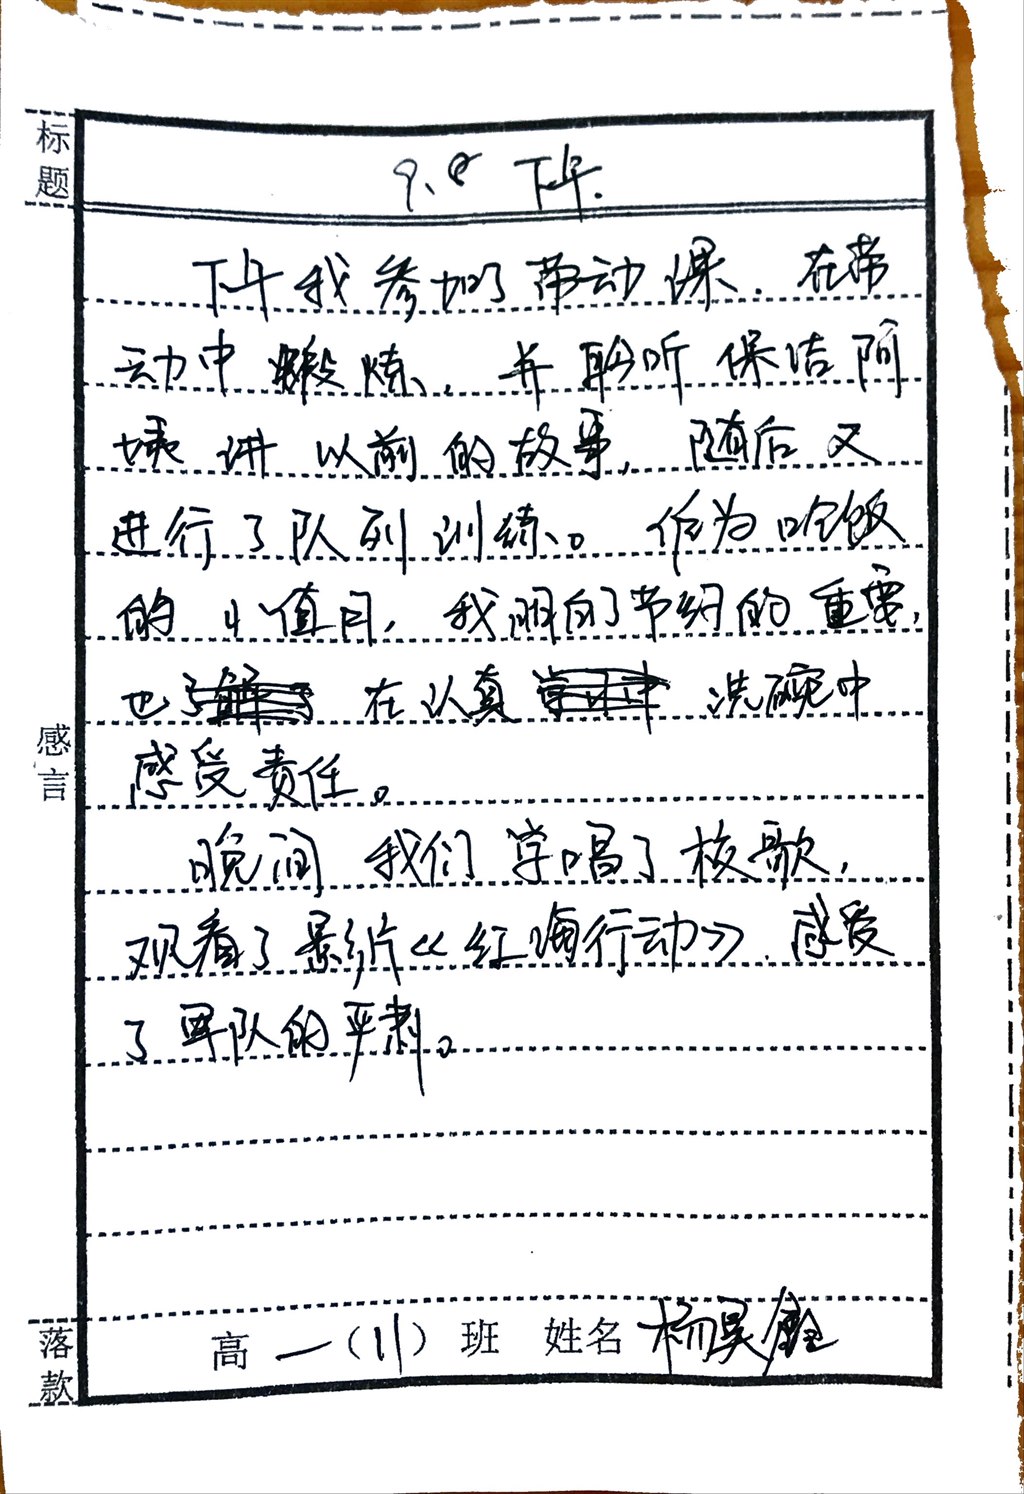 标题
9.8 下午.
下午我参加了带动课.在带
动中锻炼,并聆听保洁阿
姨讲以前的故事,随后又
进行了队列训练。作为吃饭
的小值日,我明白了节约的重要,
也在认真洗碗中
感受责任。
感言
晚间我们学唱了校歌,
观看了影片《红海行动》.感受
了军队的严肃。
落款
高一(11)班 姓名 杨昊